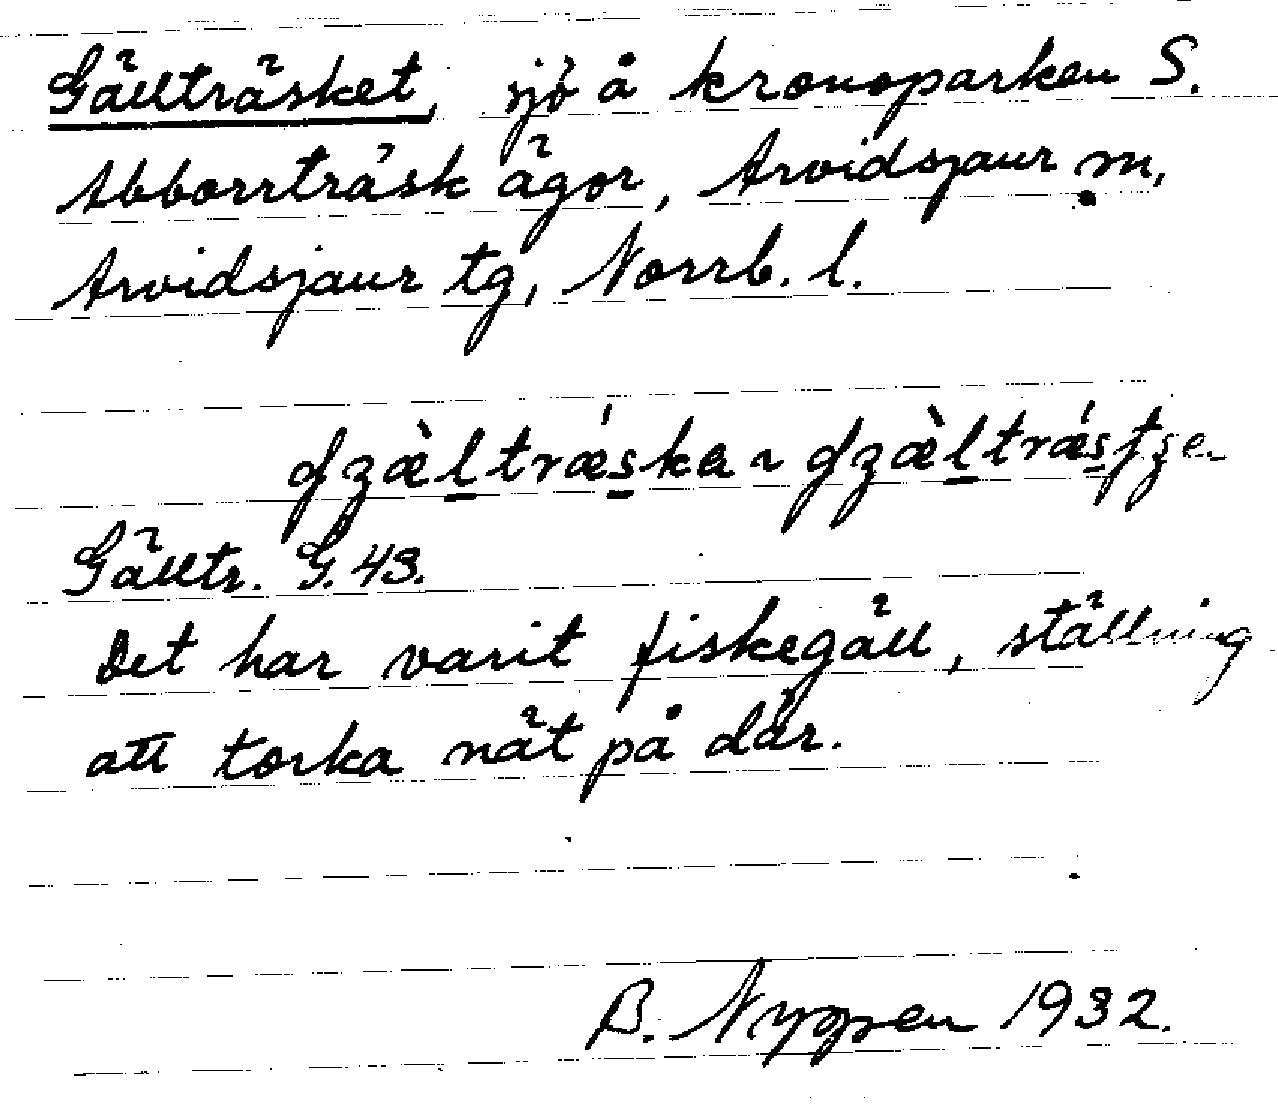 Gällträsket, sjö å kronoparken S.
Abborrträsk ägor, Arvidsjaur sn,
Arvidsjaur tg, Norrb. l.
Gälltr. G.43.
Det har varit fiskegäll, ställning
att torka nät på där.
B. Nyppen 1932.